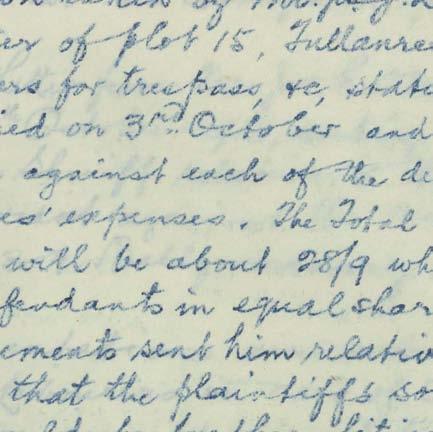 er of plot 15, Tullanree
ers for trespass, &c, stat
ied on 3rd October and
against each of the de
es' expenses. The Total
will be about 28/9 wh
fendants in equal shar
ements sent him relativ
that the plaintiffs so